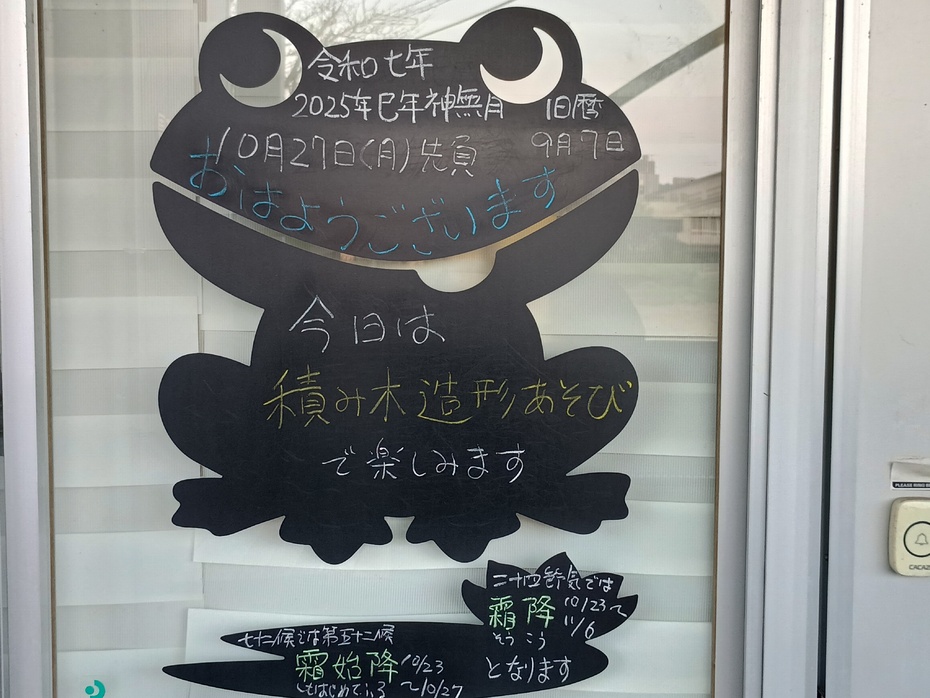 令和七年
2025年巳年神無月 旧暦
10月27日(月)先負 9月7日
おはようございます
今日は
積み木造形あそび
で楽しみます
二十四節気では
霜降 10/23〜
11/6
そうこう
となります
七十二候では第五十二候
霜始降 10/23
しもはじめてふる 〜10/27